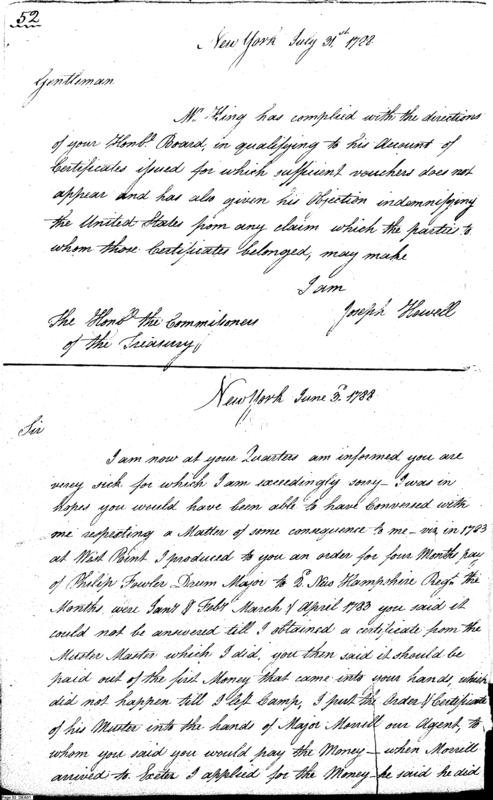 52
New York July 31st 1788
Gentleman
Mr King has complied with the directions
of your Honbl Board, in qualifying to his Account of
Certificates issued for which sufficient vouchers does not
appear and has also given his Objection indemnifying
the United States from any claim which the parties to
whom those Certificates belonged, may make
I am
Joseph Howell
The Honbl the Commissioners
of the Treasury
New York June 3d 1788
Sir
I am now at your Quarters am informed you are
very sick for which I am exceedingly sorry – I was in
hopes you would have been able to have Conversed with
me respecting a Matter of some consequence to me – viz, in 1783
at West Point I produced to you an order for four Months pay
of Philip Fowler Drum Major to 2d New Hampshire Regt the
Months were Jany & Feby March & April 1783 you said it
could not be answered till I obtained a certificate from the
Muster Master which I did, you then said it should be
paid out of the first Money that came into your hands, which
did not happen till I left Camp, I put the Order & Certificate
of his Muster into the hands of Major Morrell our Agent, to
whom you said you would pay the Money – when Morrell
arrived to Exeter I applied for the Money – he said he did